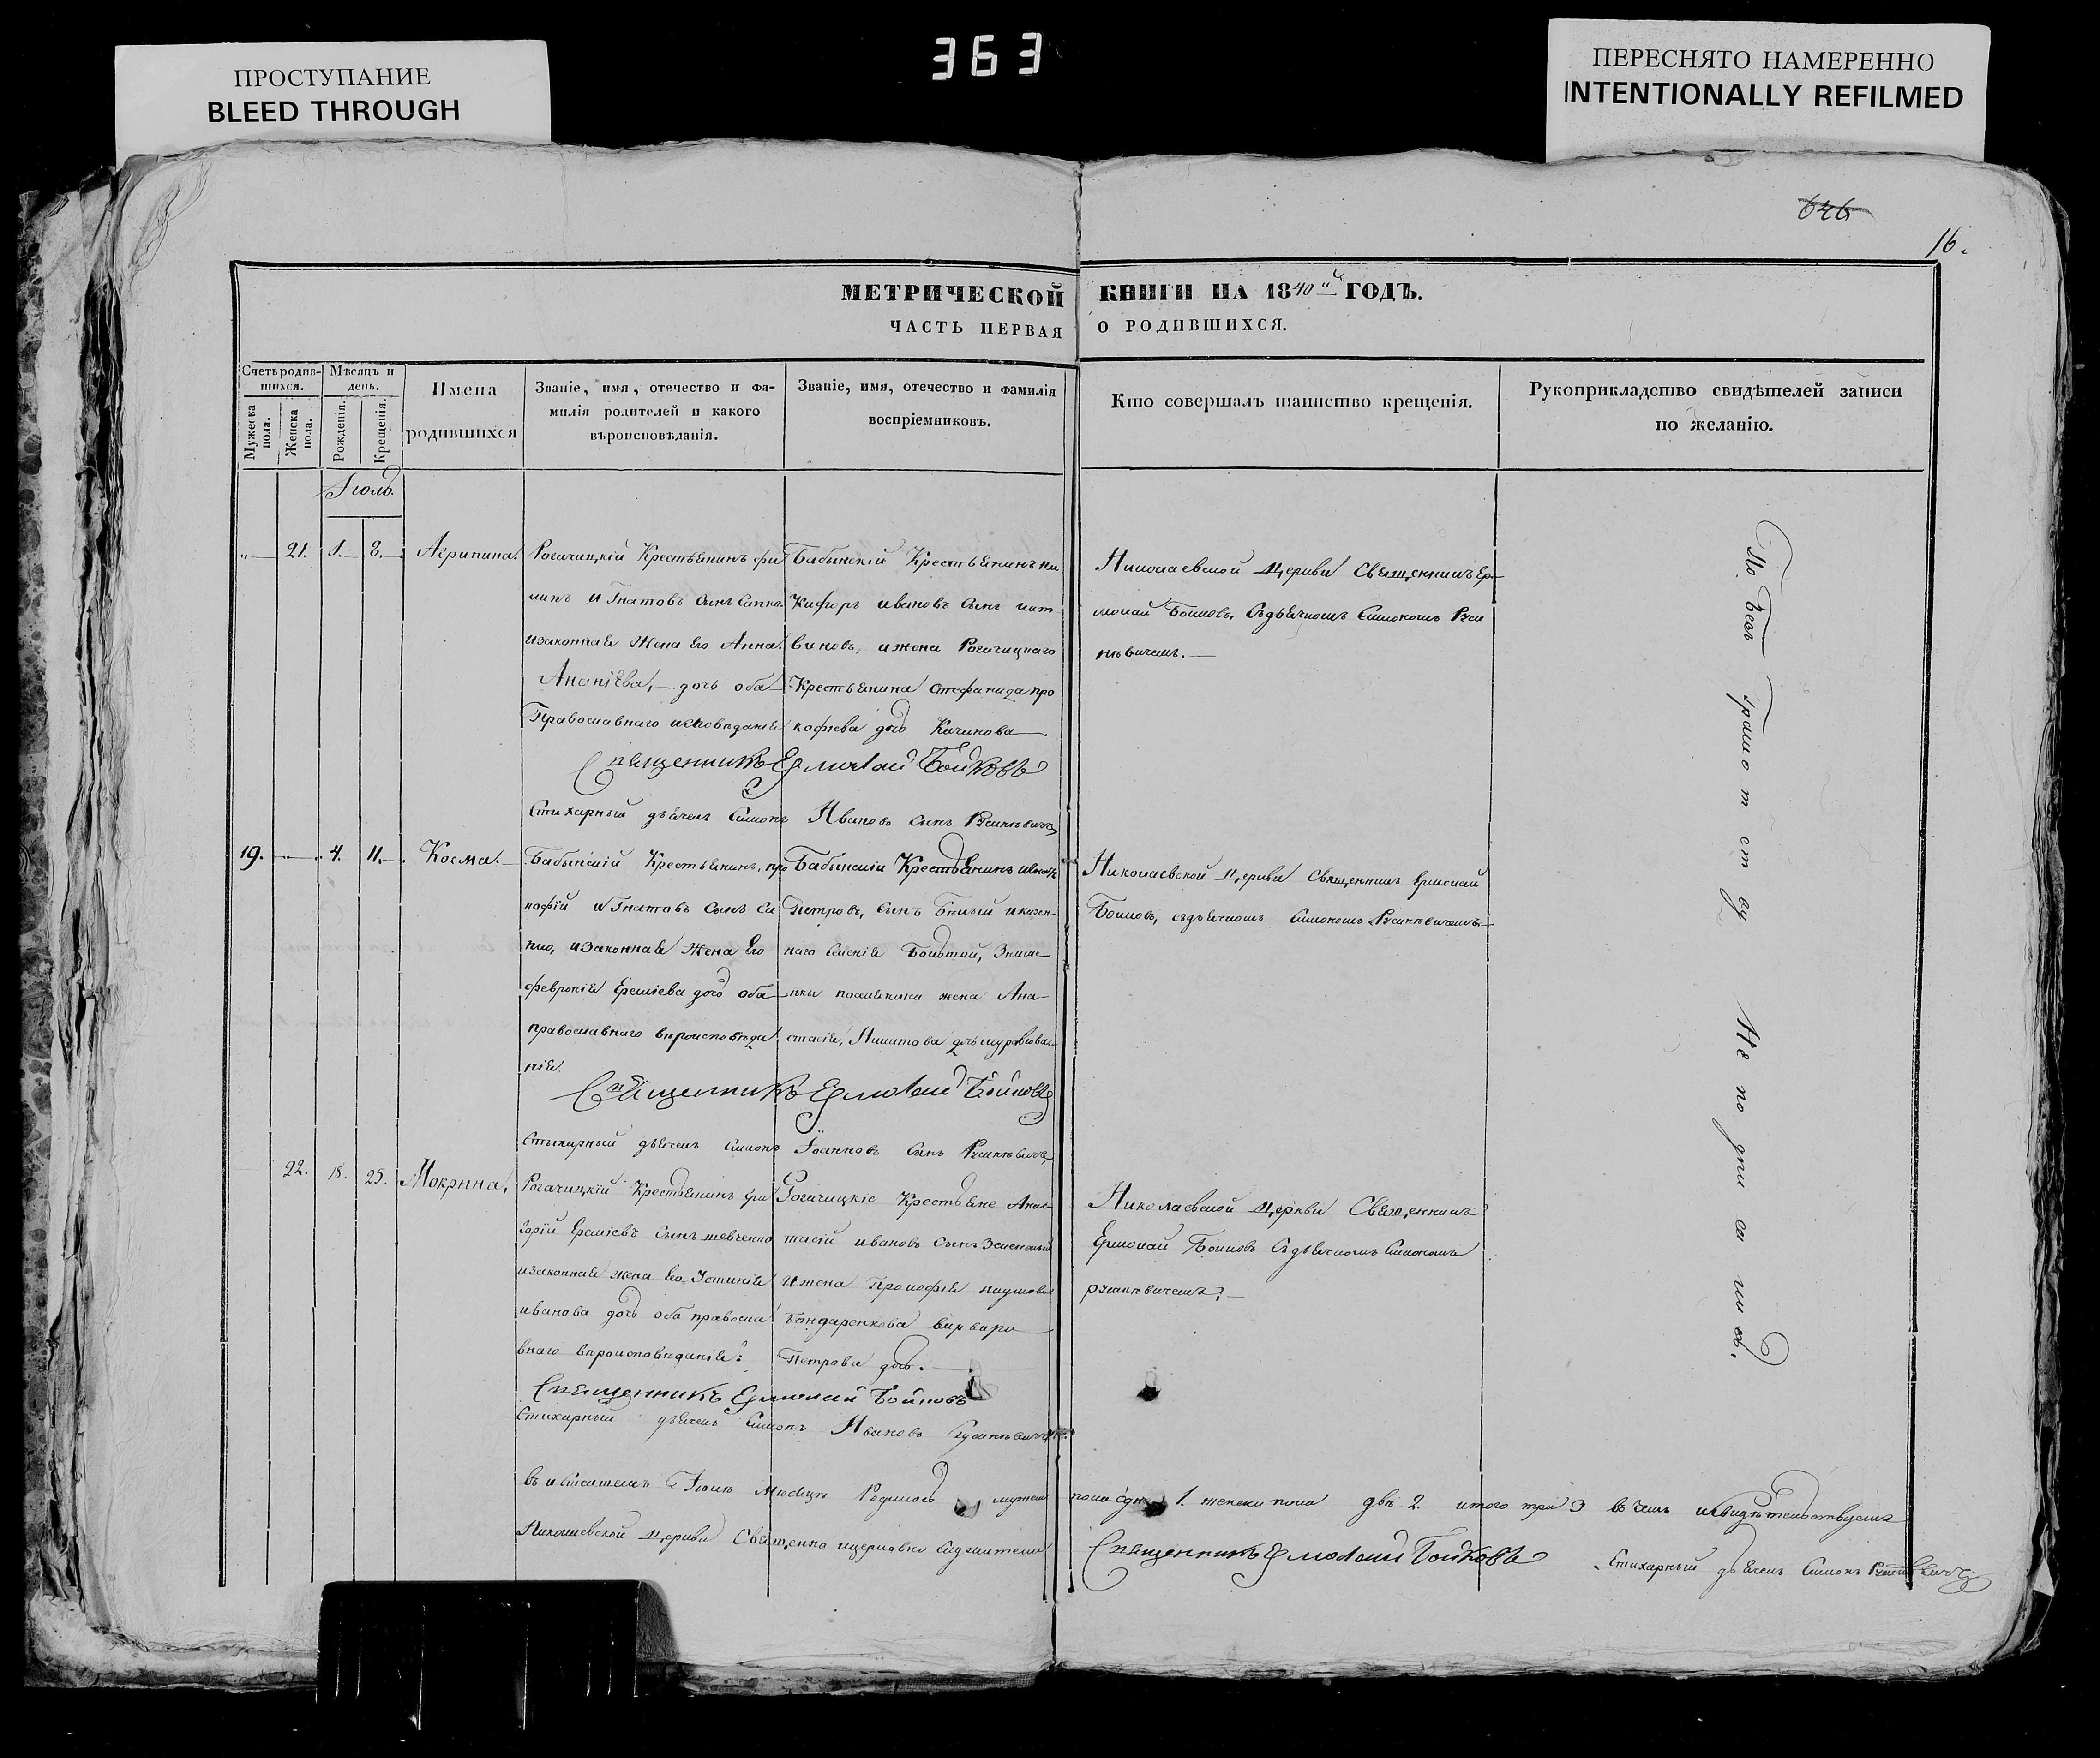 363
ПРОСТУПАНИЕ
BLEED THROUGH
ПЕРЕСНЯТО НАМЕРЕННО
INTENTIONALLY REFILMED
646
16.
МЕТРИЧЕСКОЙ КНИГИ НА 1840й ГОДЪ.
ЧАСТЬ ПЕРВАЯ О РОДИВШИХСЯ.
Счетъ родив-
шихся.
Мужеска
пола.
Женска
пола.
Мѣсяцъ и
день.
Рожденія.
Крещенія.
Имена
родившихся
Званіе, имя, отечество и фа-
милія родителей и какого
вѣроисповѣданія.
Званіе, имя, отечество и фамилія
воспріемниковъ.
Кто совершалъ таинство крещенія.
Рукоприкладство свидѣтелей записи
по желанію.
Іюль
21. 1. 8. Агрипина.
Рогачицкій Крестьянинъ фи
липъ Игнатовъ сынъ
изаконная жена его Анна
Ананіева, дочь оба
Православнаго исповѣданія
Бабынскій Крестьянинъ ни
кифоръ ивановъ сынъ лит
виновъ, ижена Рогачицкаго
Крестьянина стефанида про
кофиева дочь
Николаевской Церкви Священникъ Ер
молай Бойковъ, съдьячкомъ Симономъ Руси
невичемъ.
Священникъ Ермолай Бойковъ
Стихарный дьячекъ Симонъ Ивановъ сынъ Русиневичъ
19. 4. 11. Косма.
Бабынскій Крестьянинъ, про
кофій Игнатовъ сынъ Си
изаконная жена его
февронія Еремѣева дочь оба
православнаго вѣроисповѣда
нія.
Бабынскіи Крестьянинъ
петровъ, сынъ Бѣлый иказен-
наго селенія Болшой, Знаме
нки жена Ана-
стасія, Никитова дочь
Николаевской Церкви Священникъ Ермолай
Бойковъ, съдьячкомъ Симономъ Русиневичемъ
Священникъ Ермолай Бойковъ
Стыхарный дьячекъ Симонъ Іоанновъ сынъ Русиневичъ
22. 18. 25. Мокрина,
Рогачицкій Крестьянинъ гри
горій Еремѣевъ сынъ шевченко
изаконная жена его Устинія
иванова дочь оба правосла
внаго вѣроисповѣданія.
Рогачицкіе Крестьяне Анас
тасій ивановъ сынъ Зеленскій
ижена Прокофія наумова
Бондаренкова варвара
Петрова дочь.
Николаевской Церкви Священникъ
Ермолай Бойковъ Съдьячкомъ Симономъ
русиневичемъ.
Священникъ Ермолай Бойковъ
Стихарный дьячекъ Симонъ Ивановъ Русиневичъ
По Безъ Грамотству Неподписались.
Іюлѣ Мѣсяцѣ Родилось мужеск пола одинъ 1. женска пола двѣ 2 итого три 3 въ чемъ исвидѣтельствуемъ
Николаевской Церкви Священно ицерковно служители Священникъ Ермолаи Бойковъ Стихарный дьячекъ Симонъ Русиневичъ